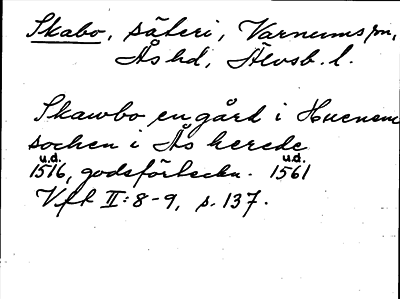 Skabo, säteri, Varnums sn,
Ås hd, Älvsb. l.
Skawbo en gård i Huenem
sochen i Ås herede
u.d. u.d.
1516, godsförteckn. 1561
Vft II:8-9, s. 137.